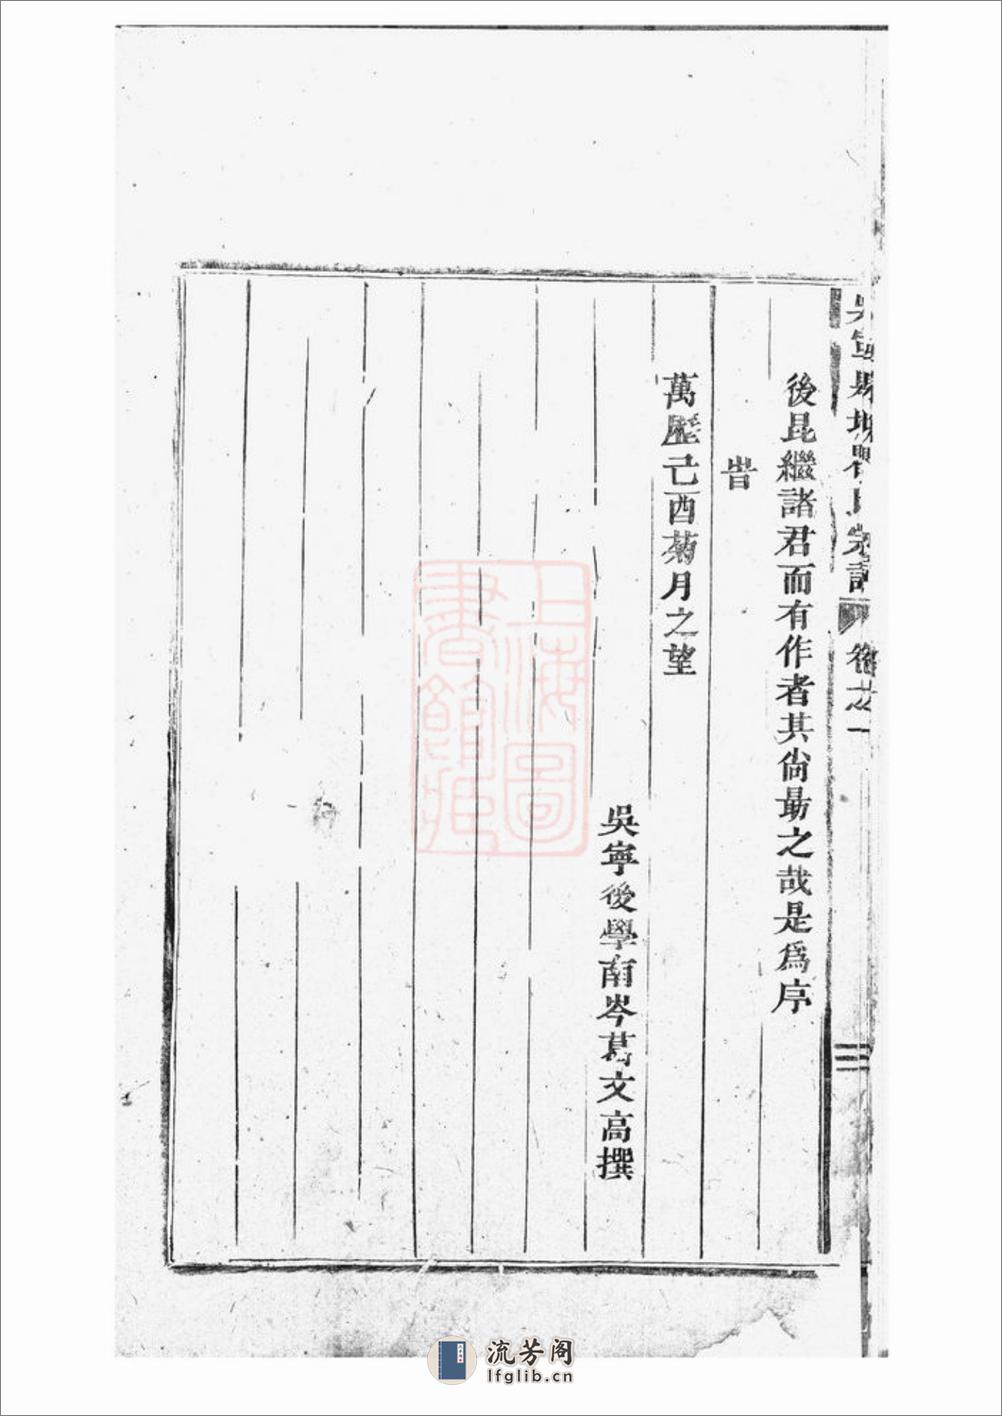 後昆繼諸君而有作者其尙勗之哉是爲序
旹
萬歷己酉菊月之望
吳寧後學南岑葛文高撰
卷之一
三
上海圖書館藏
流芳阁
lfglib.cn